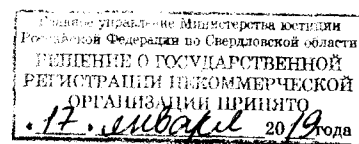 Главное управление Министерства юстиции
Российской Федерации по Свердловской области
РЕШЕНИЕ О ГОСУДАРСТВЕННОЙ
РЕГИСТРАЦИИ НЕКОММЕРЧЕСКОЙ
ОРГАНИЗАЦИИ ПРИНЯТО
"17" января 2019 года